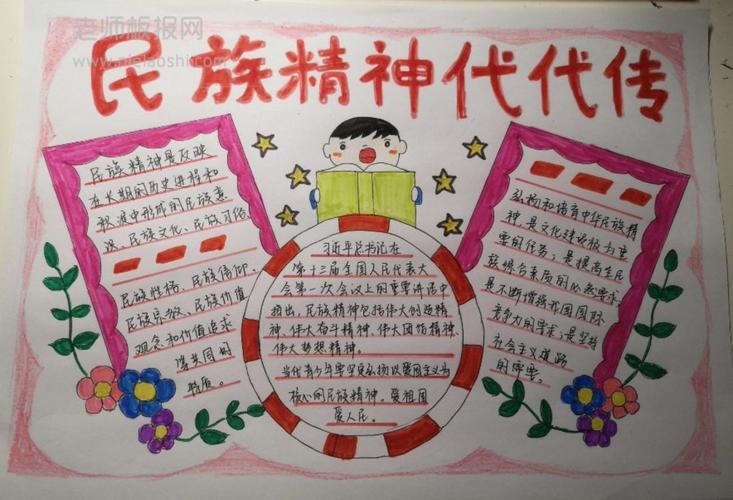 老师板报网
www.mielaoshi.com
民族精神代代传
民族精神是反映
在长期的历史进程和
积淀中形成的民族意
识、民族文化、民族习俗、
民族性格、民族信仰、
民族宗教、民族价值
观念和价值追求
等共同的
特质。
习近平总书记在
第十三届全国人民代表大
会第一次会议上的重要讲话中
指出，民族精神包括伟大创造精
神、伟大奋斗精神、伟大团结精神、
伟大梦想精神。
当代青少年要坚定弘扬以爱国主义为
核心的民族精神。爱祖国
爱人民。
弘扬和培育中华民族精
神，是文化建设极为重
要的任务；是提高全民
族综合素质的必然要求
是不断增强我国国际
竞争力的要求；是坚持
社会主义道路
的需要。